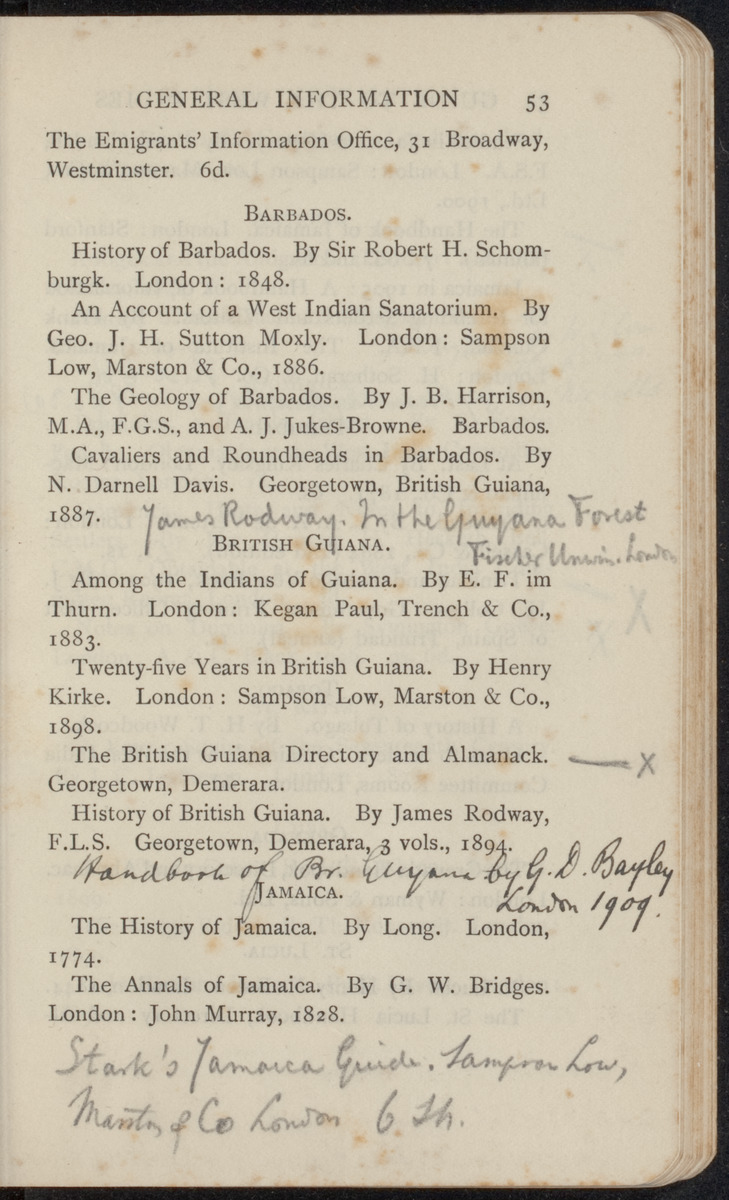 GENERAL INFORMATION 53
The Emigrants' Information Office, 31 Broadway,
Westminster. 6d.
BARBADOS.
History of Barbados. By Sir Robert H. Schom-
burgk. London: 1848.
An Account of a West Indian Sanatorium. By
Geo. J. H. Sutton Moxly. London: Sampson
Low, Marston & Co., 1886.
The Geology of Barbados. By J. B. Harrison,
M.A., F.G.S., and A. J. Jukes-Browne. Barbados.
Cavaliers and Roundheads in Barbados. By
N. Darnell Davis. Georgetown, British Guiana,
1887. James Rodway. In the Guyana Forest
Fischer Unwin. London
BRITISH GUIANA.
Among the Indians of Guiana. By E. F. im
Thurn. London: Kegan Paul, Trench & Co.,
1883.
X
Twenty-five Years in British Guiana. By Henry
Kirke. London: Sampson Low, Marston & Co.,
1898.
The British Guiana Directory and Almanack. — X
Georgetown, Demerara.
History of British Guiana. By James Rodway,
F.L.S. Georgetown, Demerara, 3 vols., 1894.
Handbook of Br. Guyana by G. D. Bayley
London 1909.
JAMAICA.
The History of Jamaica. By Long. London,
1774.
The Annals of Jamaica. By G. W. Bridges.
London: John Murray, 1828.
Stark's Jamaica Guide. Sampson Low,
Marston & Co London 6 Sh.